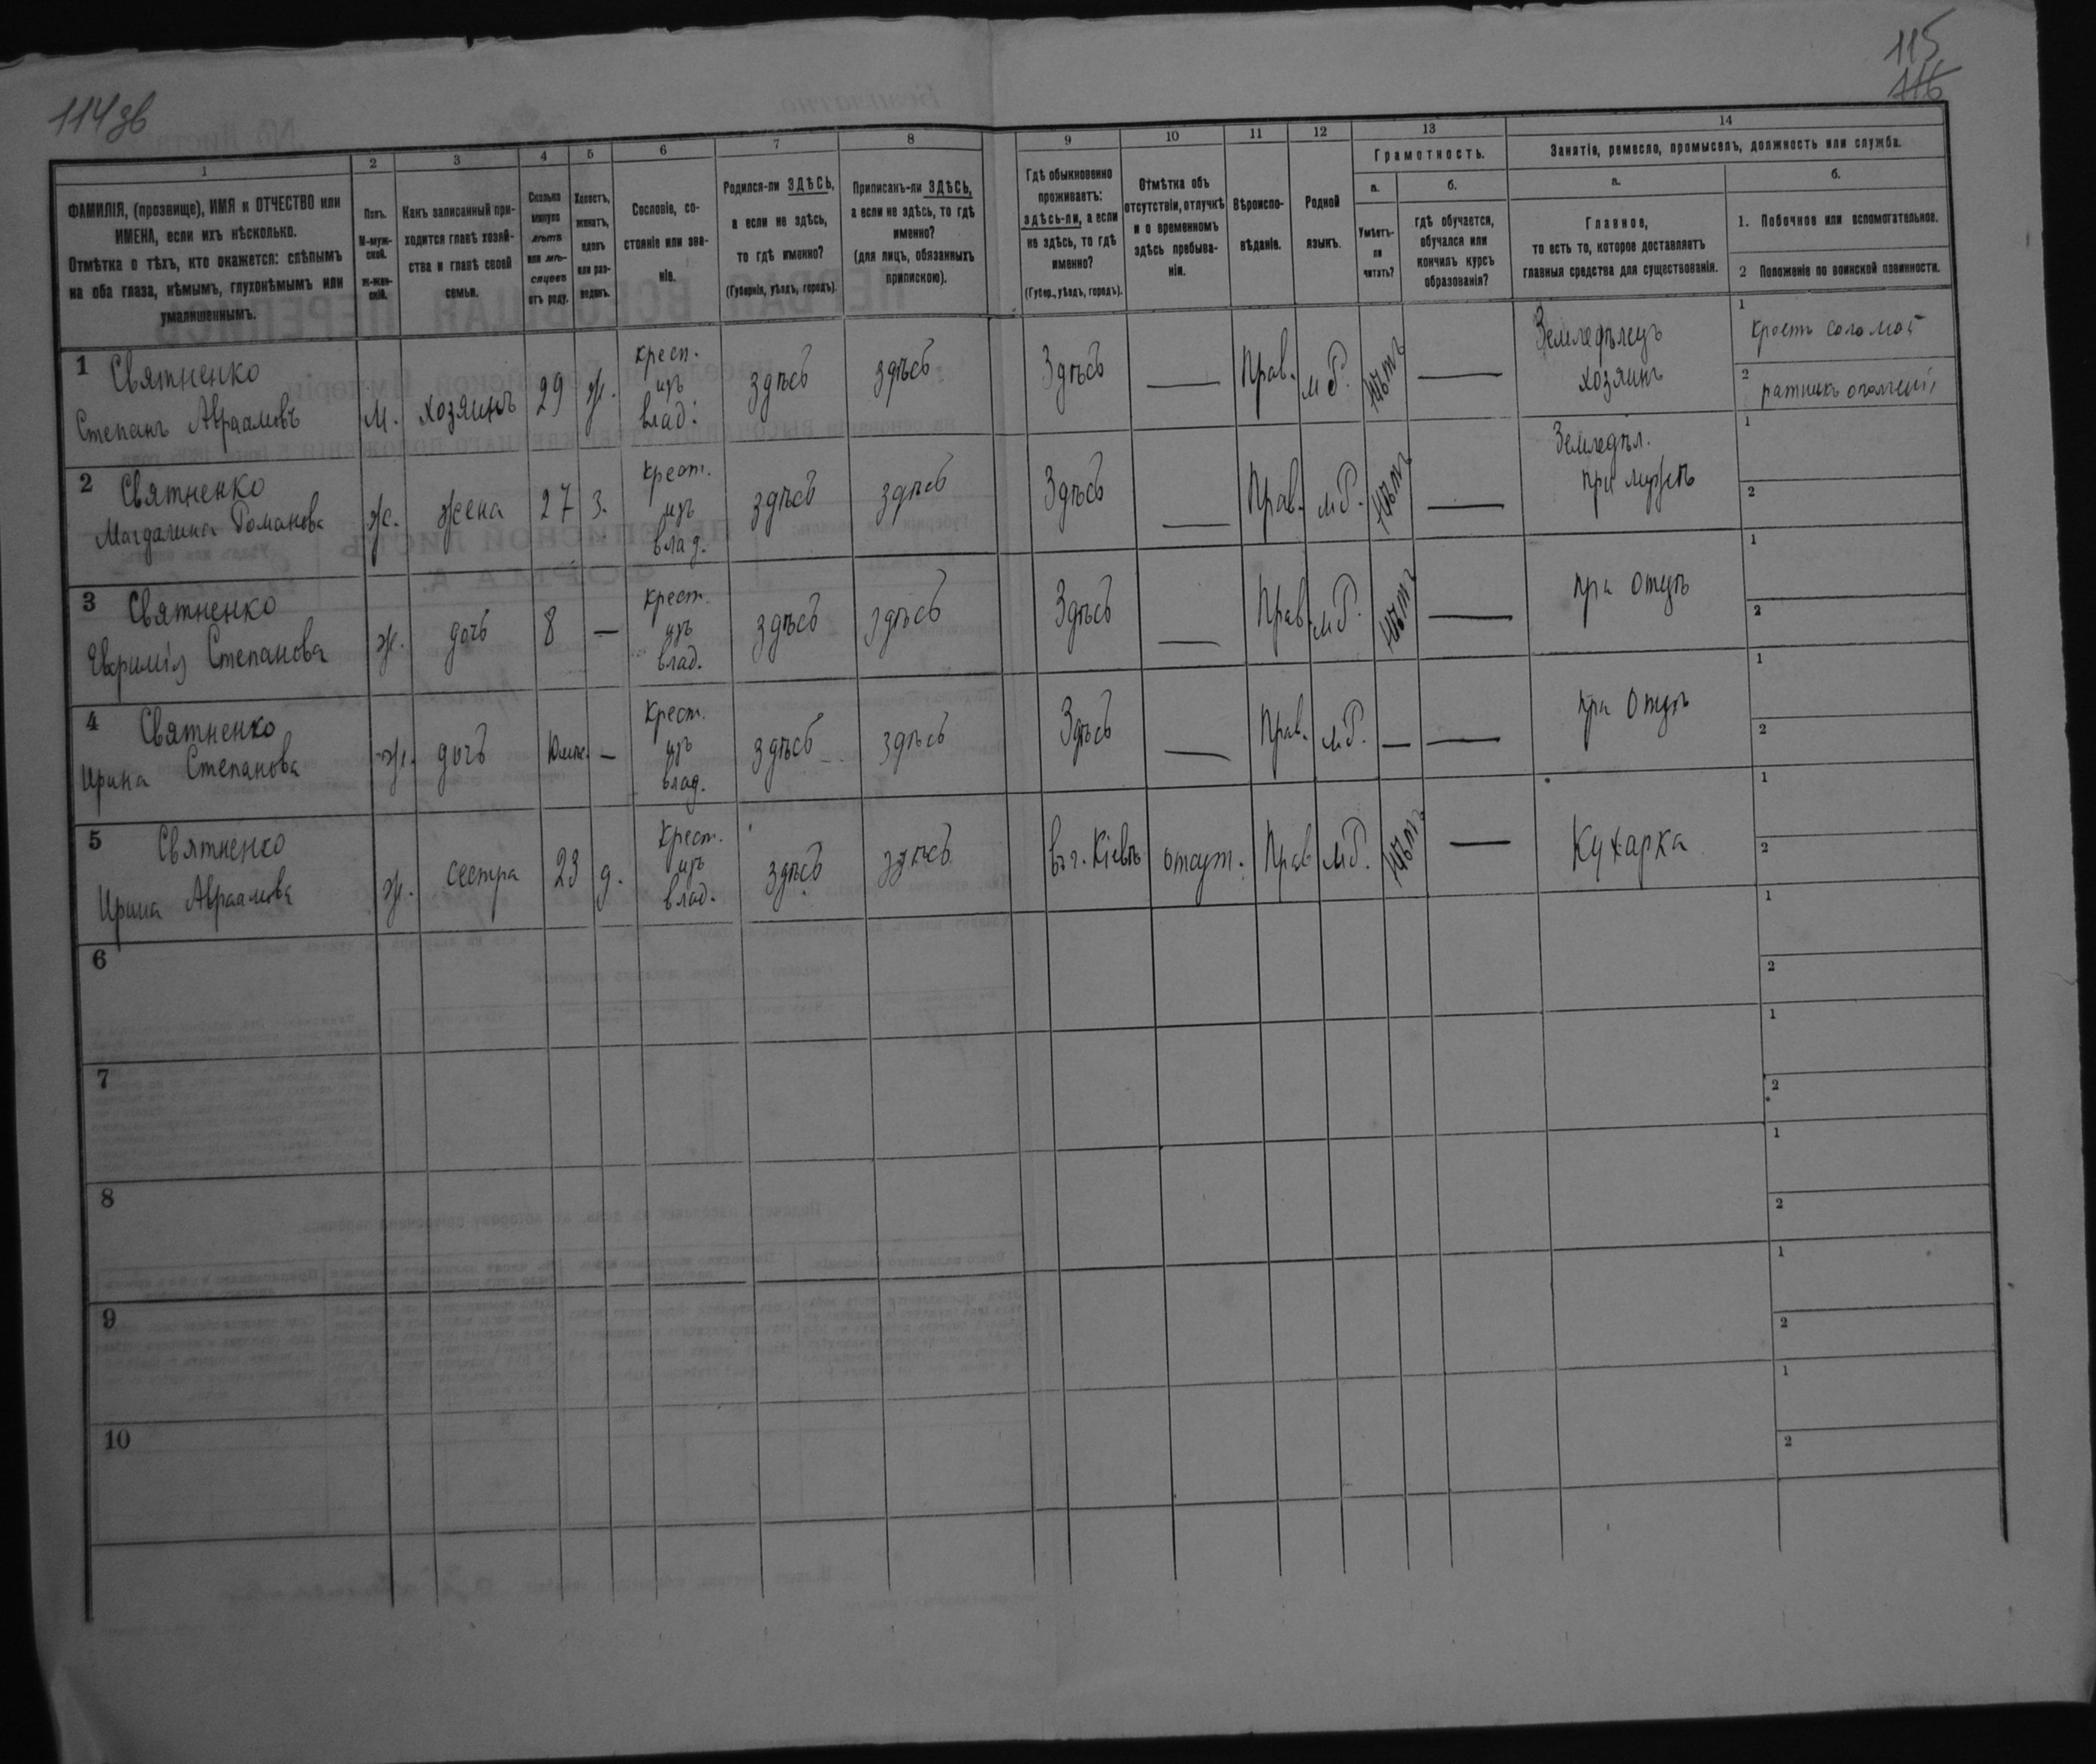 114 зв
115
116
1
2
3
4
5
6
7
8
9
10
11
12
13
14
ФАМИЛІЯ, (прозвище), ИМЯ и ОТЧЕСТВО или
ИМЕНА, если ихъ нѣсколько.
Отмѣтка о тѣхъ, кто окажется: слѣпымъ
на оба глаза, нѣмымъ, глухонѣмымъ или
умалишеннымъ.
Полъ.
М-муж-
ской.
Ж-жен-
скій.
Какъ записанный при-
ходится главѣ хозяй-
ства и главѣ своей
семьи.
Сколько
минуло
лѣтъ
или мѣ-
сяцевъ
отъ роду.
Холостъ,
женатъ,
вдовъ
или раз-
веденъ.
Сословіе, со-
стояніе или зва-
ніе.
Родился-ли ЗДѢСЬ,
а если не здѣсь,
то гдѣ именно?
(Губернія, уѣздъ, городъ).
Приписанъ-ли ЗДѢСЬ,
а если не здѣсь, то гдѣ
именно?
(для лицъ, обязанныхъ
припискою).
Гдѣ обыкновенно
проживаетъ:
здѣсь-ли, а если
не здѣсь, то гдѣ
именно?
(Губер., уѣздъ, городъ).
Отмѣтка объ
отсутствіи, отлучкѣ
и о временномъ
здѣсь пребыва-
ніи.
Вѣроиспо-
вѣданіе.
Родной
языкъ.
Грамотность.
а.
Умѣетъ-
ли
читать?
б.
гдѣ обучается,
обучался или
кончилъ курсъ
образованія?
Занятіе, ремесло, промыселъ, должность или служба.
а.
Главное,
то есть то, которое доставляетъ
главныя средства для существованія.
б.
1. Побочное или вспомогательное.
2 Положеніе по воинской повинности.
1 Святненко
Степанъ Авраамовъ
М.
хозяинъ
29
ж.
крест.
изъ
влад.
здѣсь
здѣсь
Здѣсь
—
Прав.
мр.
нѣтъ
—
Земледѣлецъ
хозяинъ
1
2
2 Святненко
Магдалина Романова
ж.
жена
27
з.
крест.
изъ
влад.
здѣсь
здѣсь
Здѣсь
—
Прав.
мр.
нѣтъ
—
Земледѣл.
при мужѣ
1
2
3 Святненко
Евфимія Степанова
ж.
дочь
8
—
крест.
изъ
влад.
здѣсь
здѣсь
Здѣсь
—
Прав.
мр.
нѣтъ
—
при отцѣ
1
2
4 Святненко
Ирина Степанова
ж.
дочь
—
крест.
изъ
влад.
здѣсь
здѣсь
Здѣсь
—
Прав.
мр.
—
—
при отцѣ
1
2
5 Святненко
Ирина Авраамова
ж.
сестра
23
д.
крест.
изъ
влад.
здѣсь
здѣсь
въ г. Кіевѣ
отсут.
Прав
мр.
нѣтъ
—
Кухарка
1
2
6
1
2
7
1
2
8
1
2
9
1
2
10
1
2